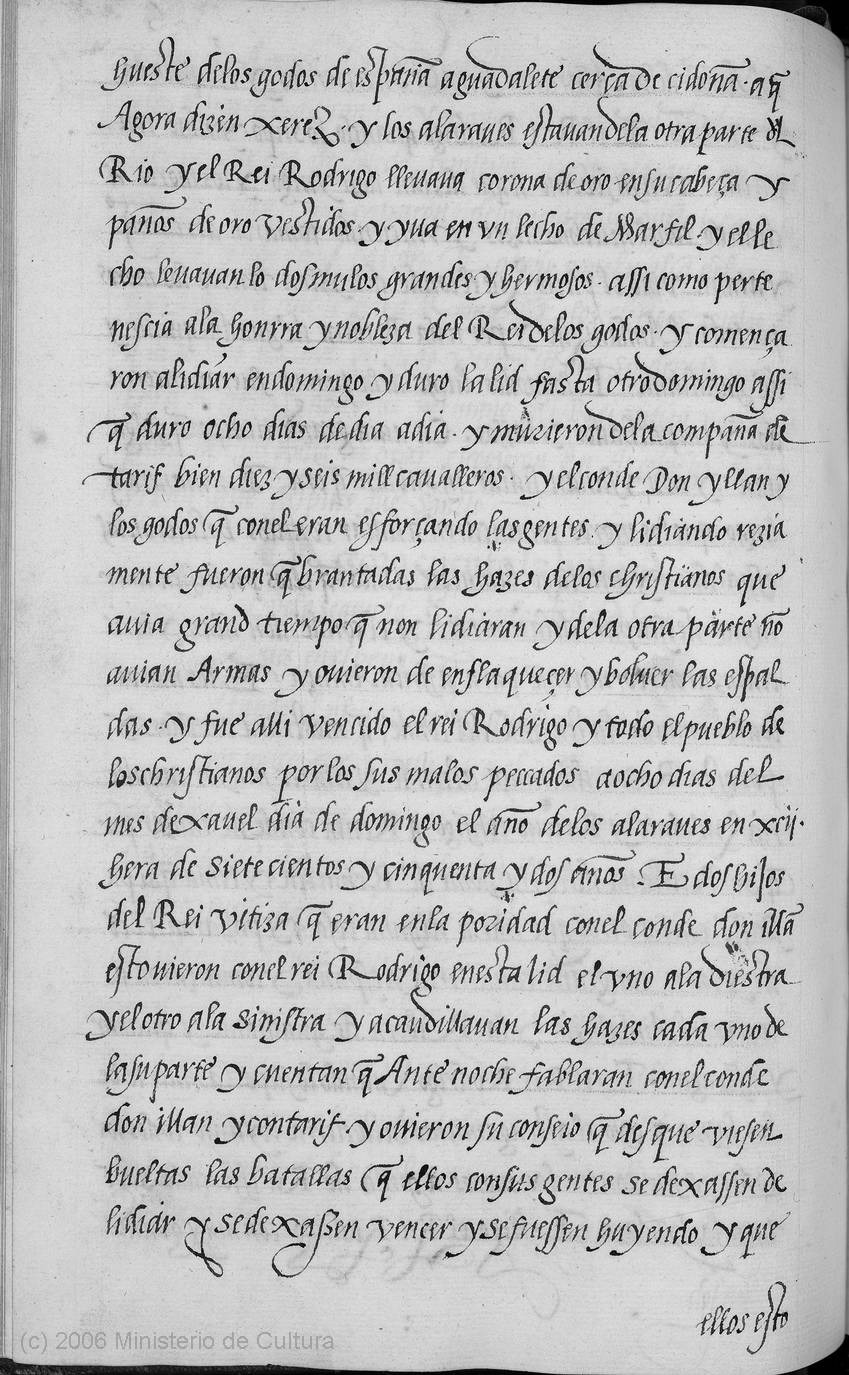 hueste delos godos de españa aguadalete cerça de cidoña · a q̃
Agora dizen xerez · y los alaraves estavan dela otra parte del
Rio y el Rei Rodrigo llevava corona de oro en su cabeça y
paños de oro vestidos · y yua en vn lecho de Marfil · y el le
cho levavan lo dos mulos grandes y hermosos · assi como perte
nescia ala honrra y nobleza del Rei delos godos · y començа
ron alidiar en domingo y duro la lid fasta otro domingo assi
q̃ duro ocho dias de dia adia · y murieron dela compaña de
tarif bien diez y seis mill cavalleros · y el conde Don yllan y
los godos q̃ con el eran esforçando las gentes · y lidiando rezia
mente fueron q̃brantadas las hazes delos christianos que
avia grand tiempo q̃ non lidiaran y dela otra parte nõ
avian Armas y ovieron de enflaqueçer y bolver las espal
das · y fue alli vencido el rei Rodrigo y todo el pueblo de
los christianos por los sus malos peccados a ocho dias del
mes de xavel dia de domingo el año delos alaraves en xcij ·
hera de siete cientos y cinquenta y dos años · E dos hijos
del Rei vitiza q̃ eran en la poridad con el conde don illã
estovieron con el rei Rodrigo en esta lid el vno ala diestra
y el otro ala sinistra y acaudillavan las hazes cada vno de
la su parte y cuentan q̃ Ante noche fablaran con el conde
don illan y con tarif · y ovieron su conseio q̃ desque viesen
bueltas las batallas q̃ ellos con sus gentes se dexassen de
lidiar y se dexassen vencer y se fuessen huyendo y que
ellos esto
(c) 2006 Ministerio de Cultura